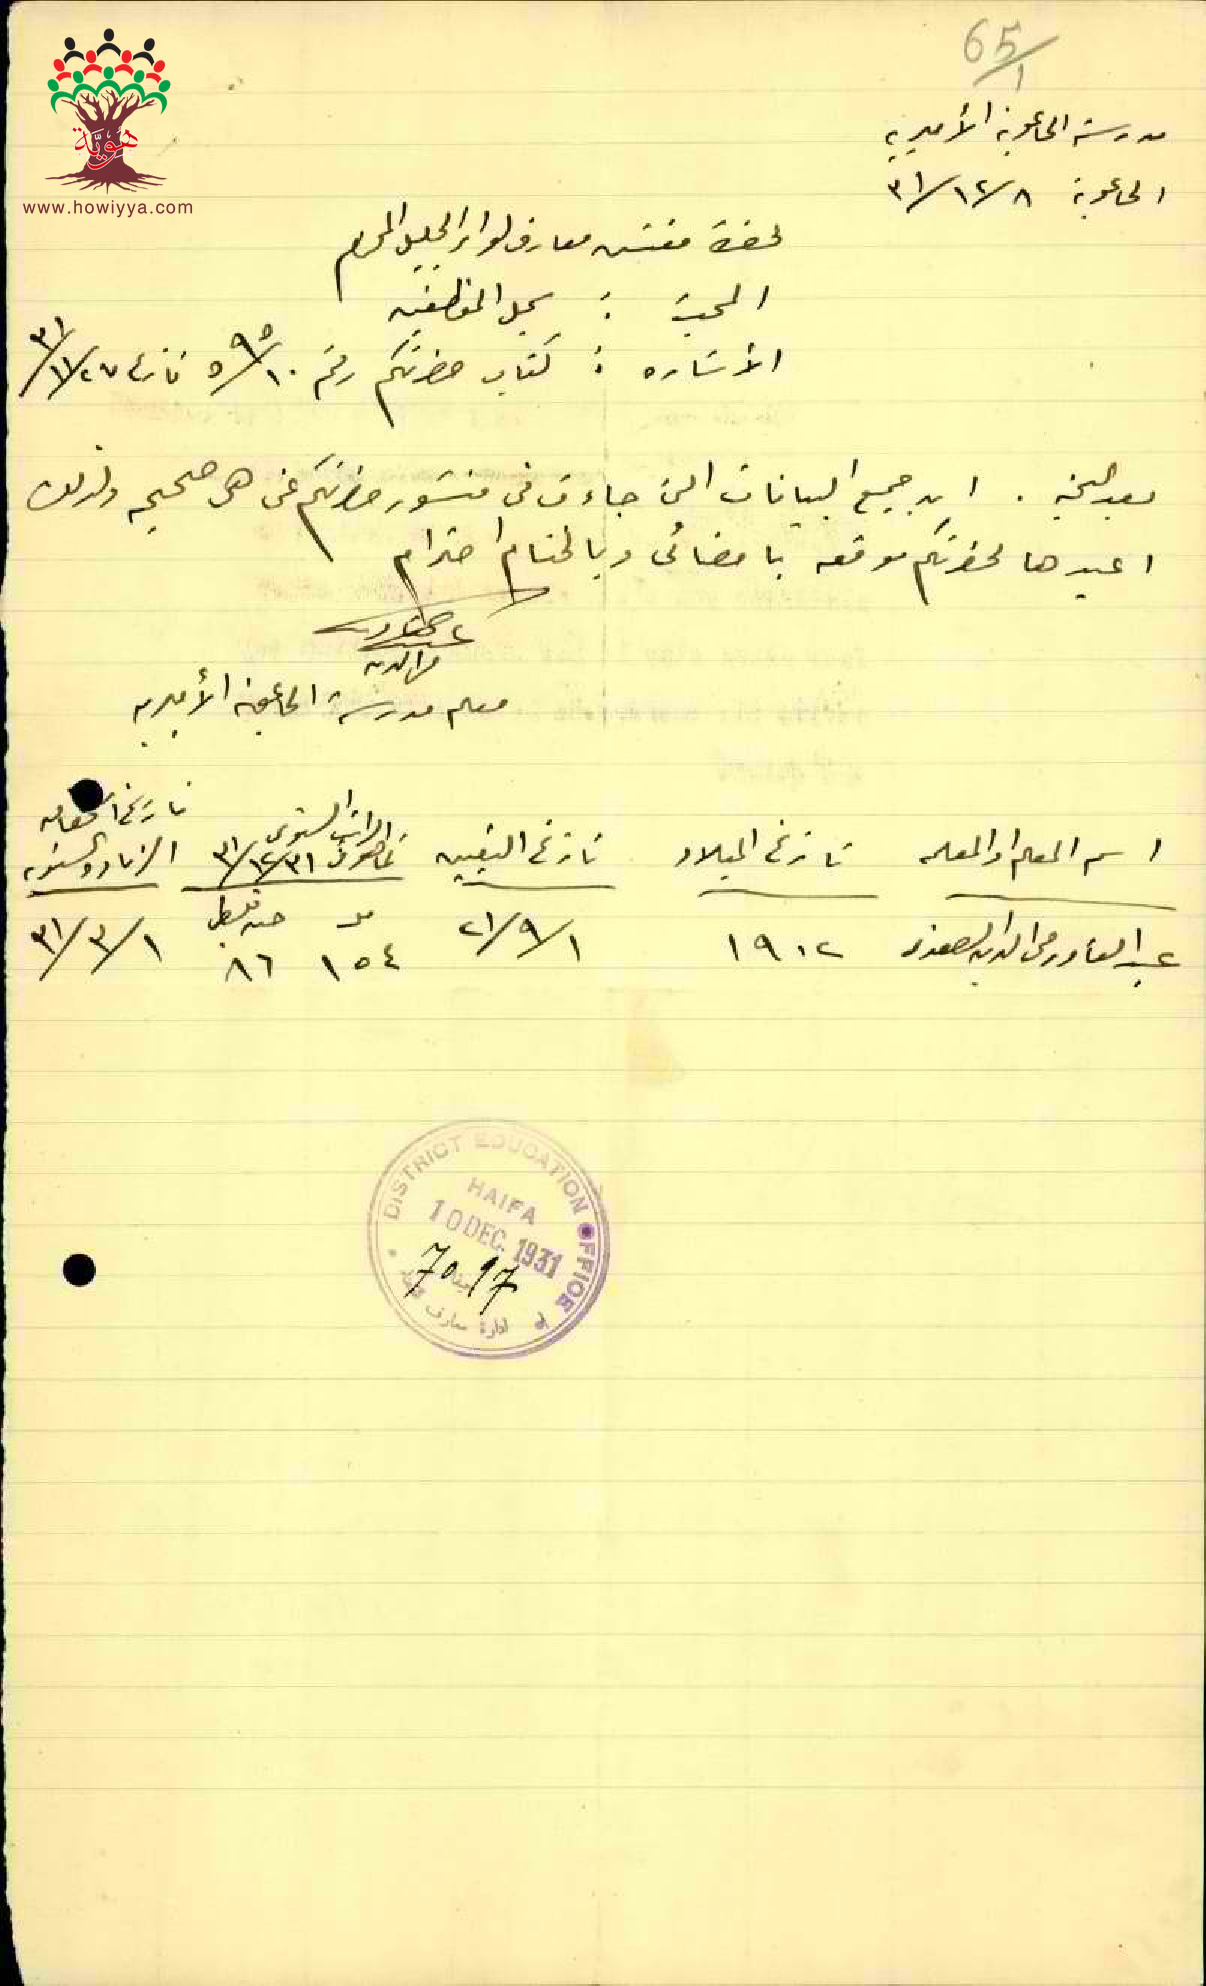 65/1
هويّة
www.howiyya.com
مدرسة الجاعونة الأميرية
الجاعونة ٣١/١٢/٨
لحضرة مفتش معارف لواء الجليل المحترم
المبحث : سجل الموظفين
الأشاره : كتاب حضرتكم رقم ٥٩٥/١٠ تاريخ ٣١/١١/٢٧
بعد التحية . ان جميع البيانات التي جاءت في منشور حضرتكم عني هي صحيحه ولذلك
اعيدها لحضرتكم موقعه بامضائي وبالختام احترام
عبد القادر
محي الدين
معلم مدرسة الجاعونة الأميريه
اسم المعلم او المعلمه تاريخ الميلاد تاريخ التعيين الراتب السنوي كما هو في ٣١/١٢/٣١ تاريخ استحقاقه الزياده السنويه
عبد القادر محي الدين الصفدي ١٩١٢ ٢١/٩/١ مل ١٥٤ جنيه فلسطيني ٨٦ ٣١/٣/١
DISTRICT EDUCATION OFFICE
HAIFA
10 DEC. 1931
7017
ادارة معارف